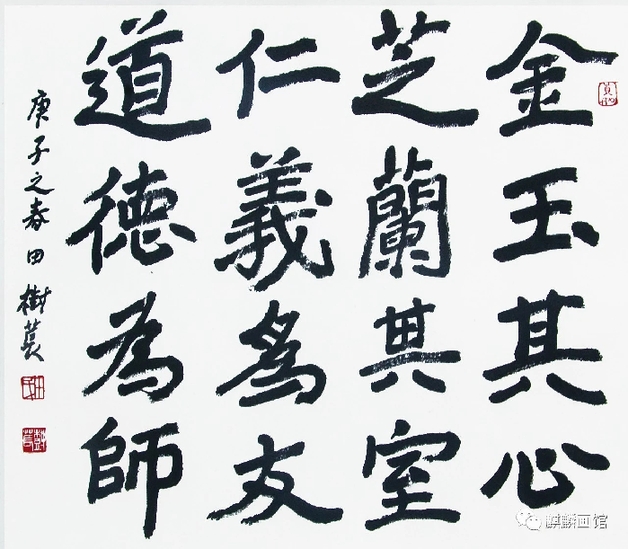 金玉其心
芝蘭其室
仁義為友
道德為師
庚子之春田樹萇
麒麟画馆